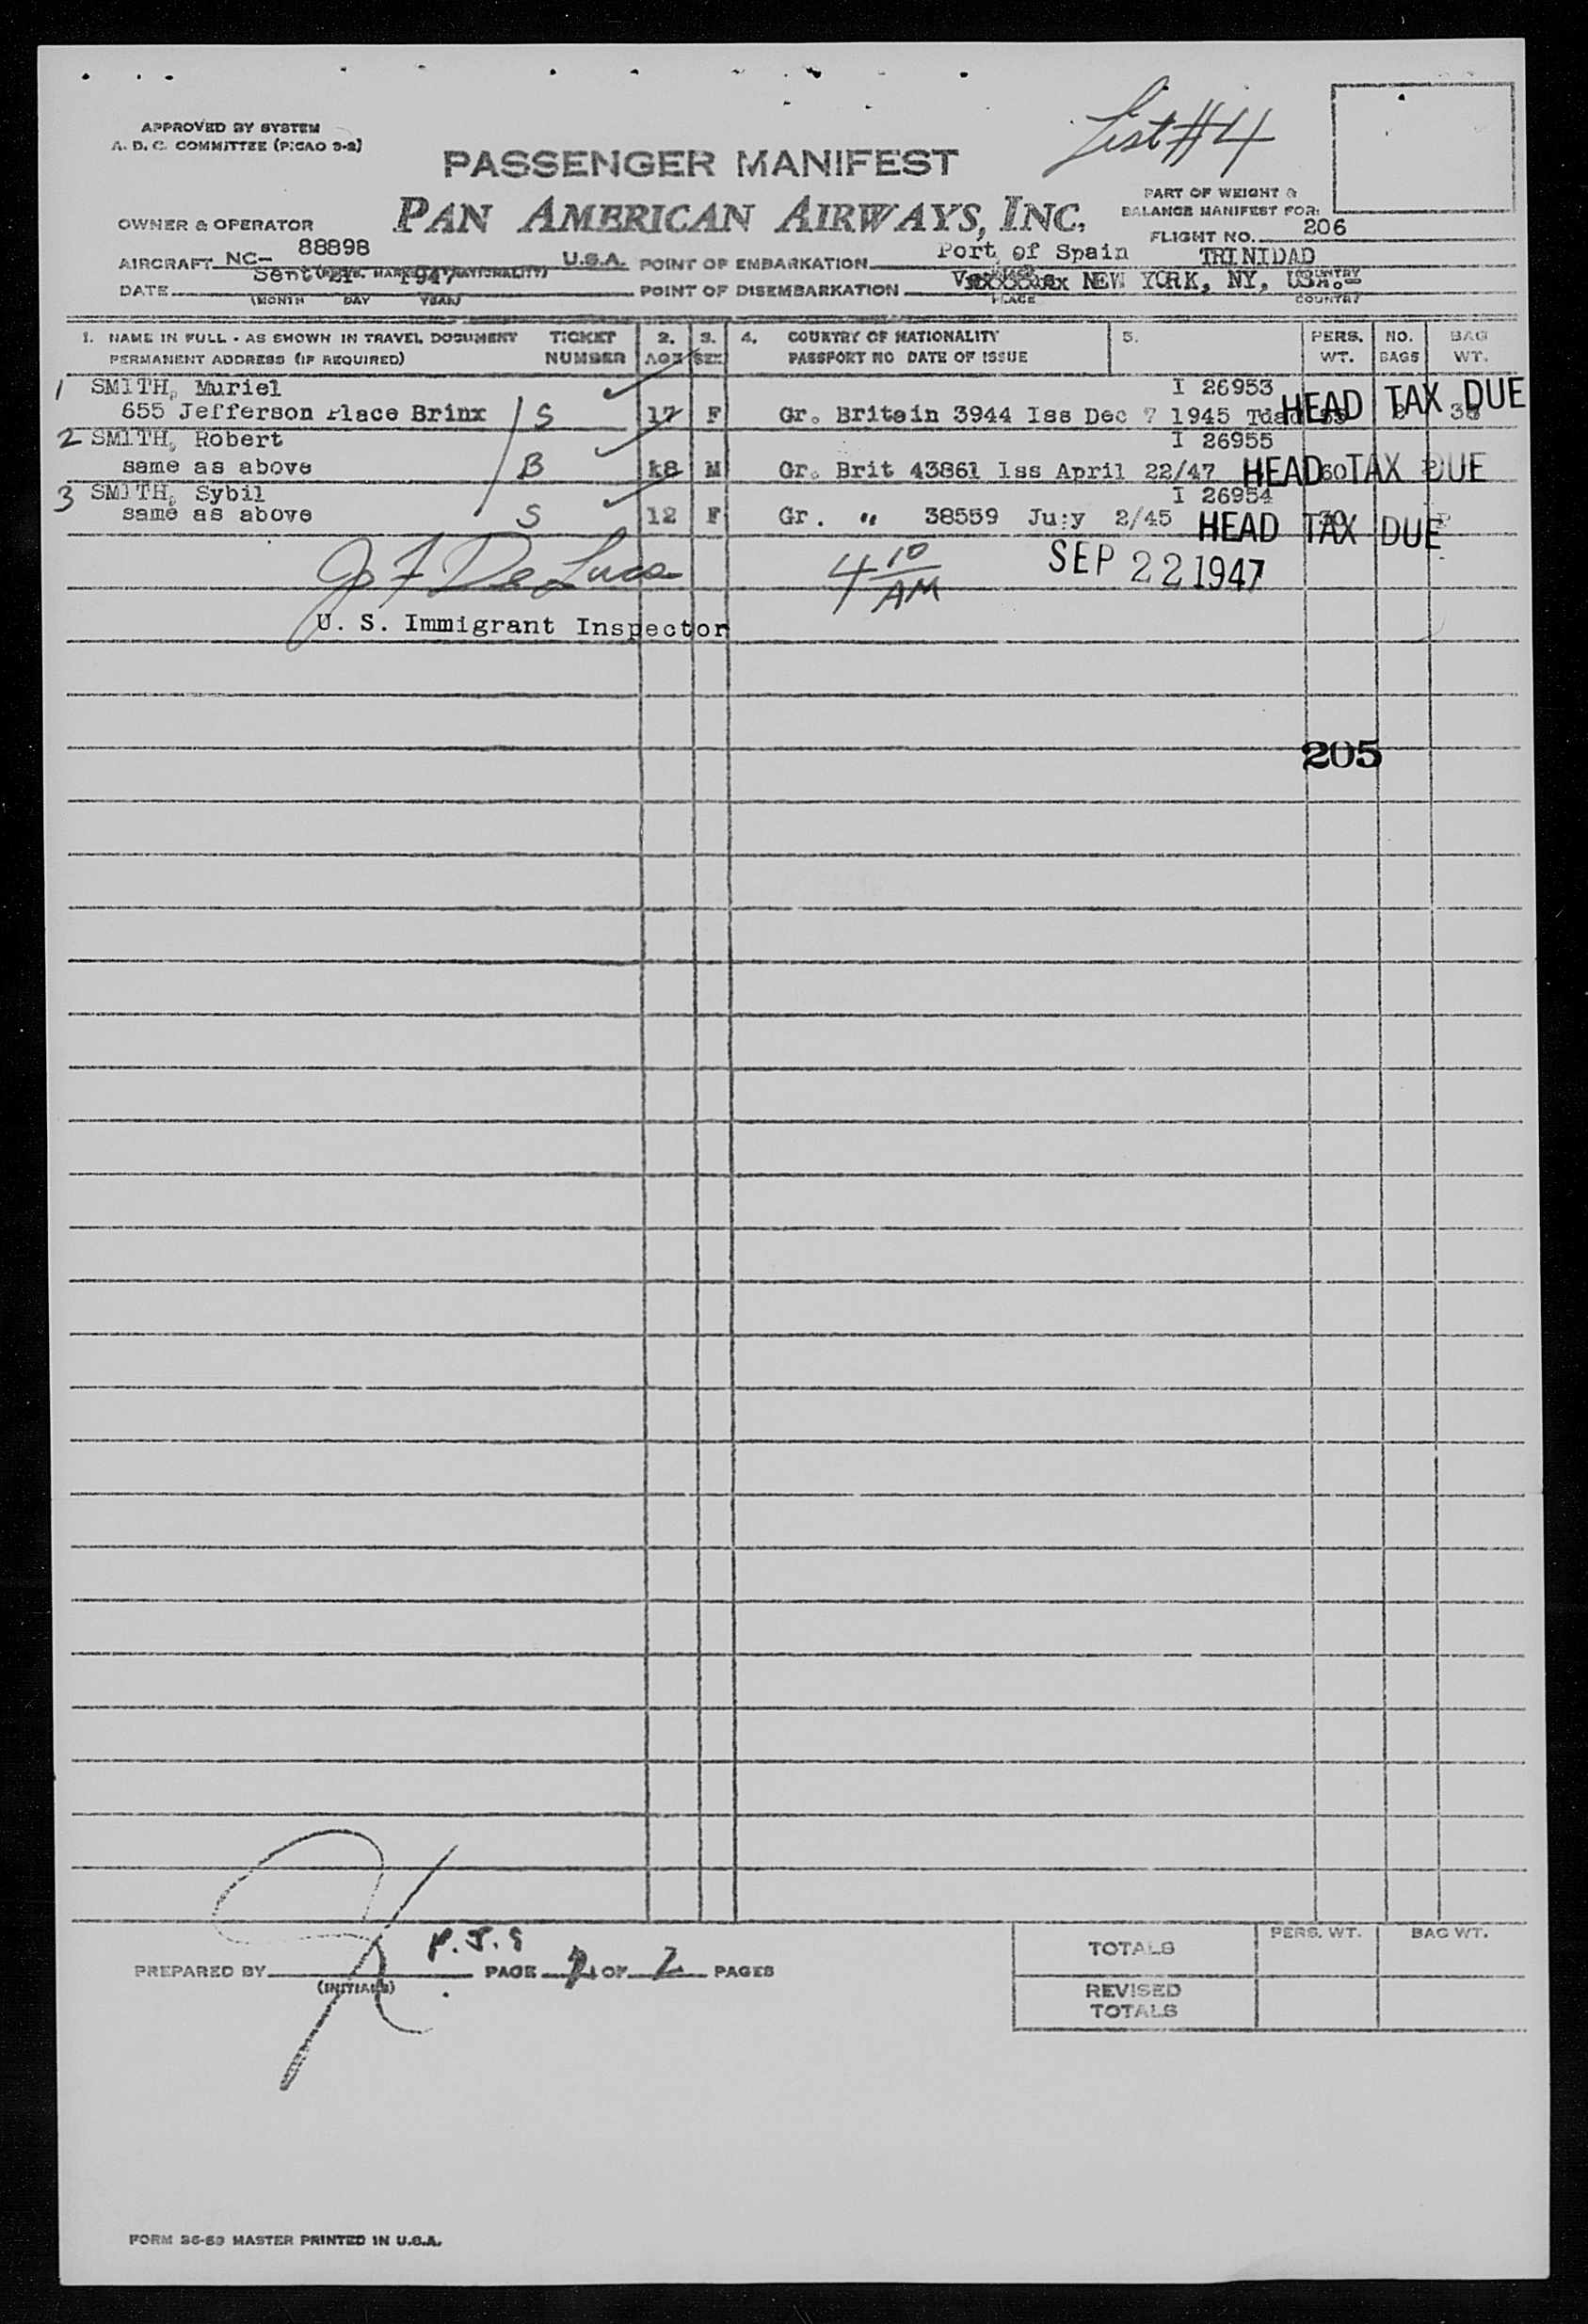 List #4
APPROVED BY SYSTEM
A. D. C. COMMITTEE (PICAO 9-2)
PASSENGER MANIFEST
PART OF WEIGHT &
BALANCE MANIFEST FOR:
OWNER & OPERATOR
PAN AMERICAN AIRWAYS, INC.
FLIGHT NO. 206
AIRCRAFT NC- 88898 U.S.A. POINT OF EMBARKATION Port of Spain TRINIDAD
DATE Sept 21 1947 POINT OF DISEMBARKATION NEW YORK, NY,
(MONTH DAY YEAR) PLACE COUNTRY
1. NAME IN FULL - AS SHOWN IN TRAVEL DOCUMENT TICKET 2. 3. 4. COUNTRY OF NATIONALITY 5. PERS. NO. BAG
PERMANENT ADDRESS (IF REQUIRED) NUMBER AGE SEX PASSPORT NO DATE OF ISSUE WT. BAGS WT.
1 SMITH, Muriel I 26953 HEAD TAX DUE
655 Jefferson Place Brinx S 17 F Gr. Britain 3944 Iss Dec 7 1945
2 SMITH, Robert I 26955
same as above B M Gr. Brit 43861 Iss April 22/47 HEAD TAX DUE
60
3 SMITH, Sybil I 26954
same as above S 12 F Gr. " 38559 Ju:y 2/45 HEAD TAX DUE
Jo F De Luca 4 10 AM SEP 22 1947
U. S. Immigrant Inspector
205
P.J.S
PREPARED BY PAGE 2 OF 2 PAGES
(INITIALS)
TOTALS PERS. WT. BAG WT.
REVISED
TOTALS
FORM 36-69 MASTER PRINTED IN U.S.A.